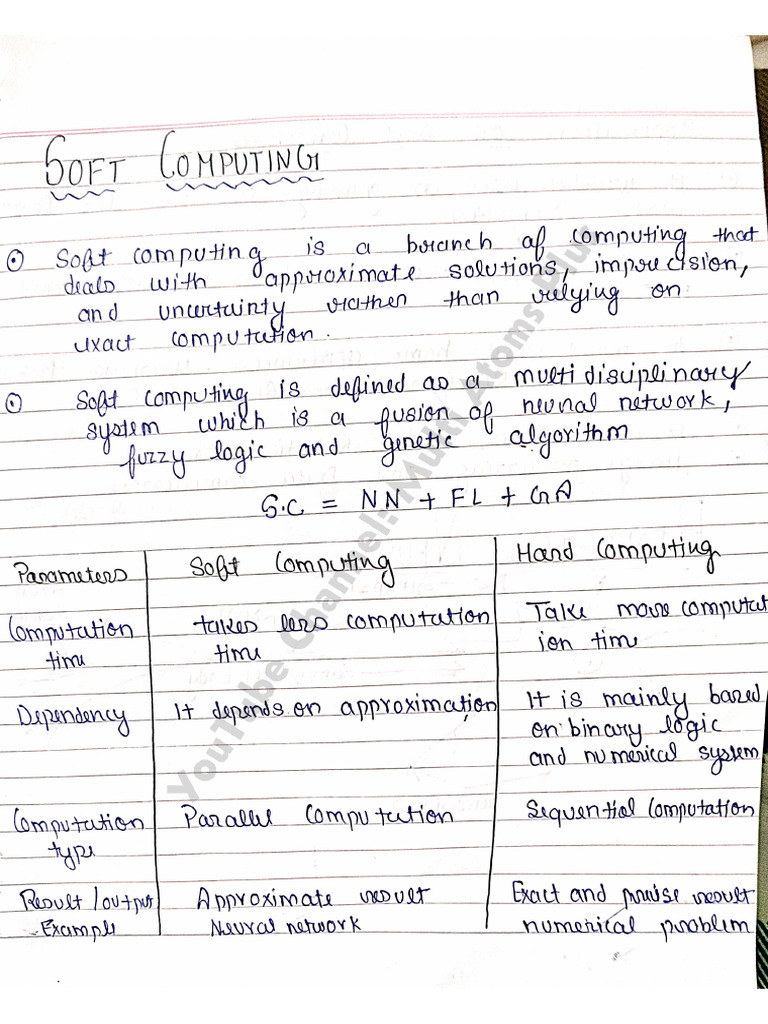 SOFT COMPUTING
Soft computing is a branch of computing that
deals with approximate solutions, imprecision,
and uncertainty rather than relying on
exact computation.
Soft computing is defined as a multidisciplinary
system which is a fusion of neural network,
fuzzy logic and genetic algorithm
S.C = NN + FL + GA
Parameters Soft Computing Hard Computing
Computation takes less computation Take more computat
time time ion time
Dependency It depends on approximation It is mainly based
on binary logic
and numerical system
Computation Parallel Computation Sequential Computation
type
Result/output Approximate result Exact and precise result
Example Neural network numerical problem
YouTube Channel: Multi Atoms Blur